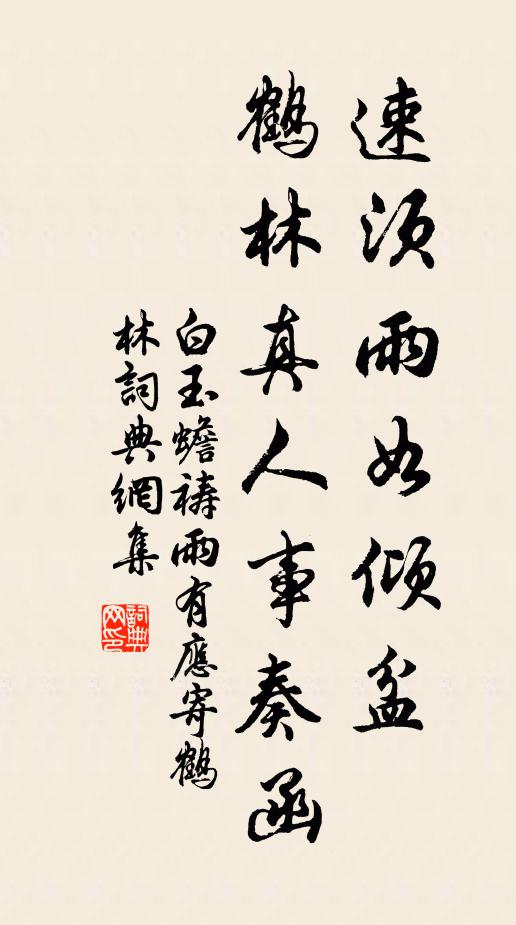 速須雨如傾盆
鶴林真人事奏函
白玉蟾禱雨有應寄鶴
林詞典網集
詞典网印